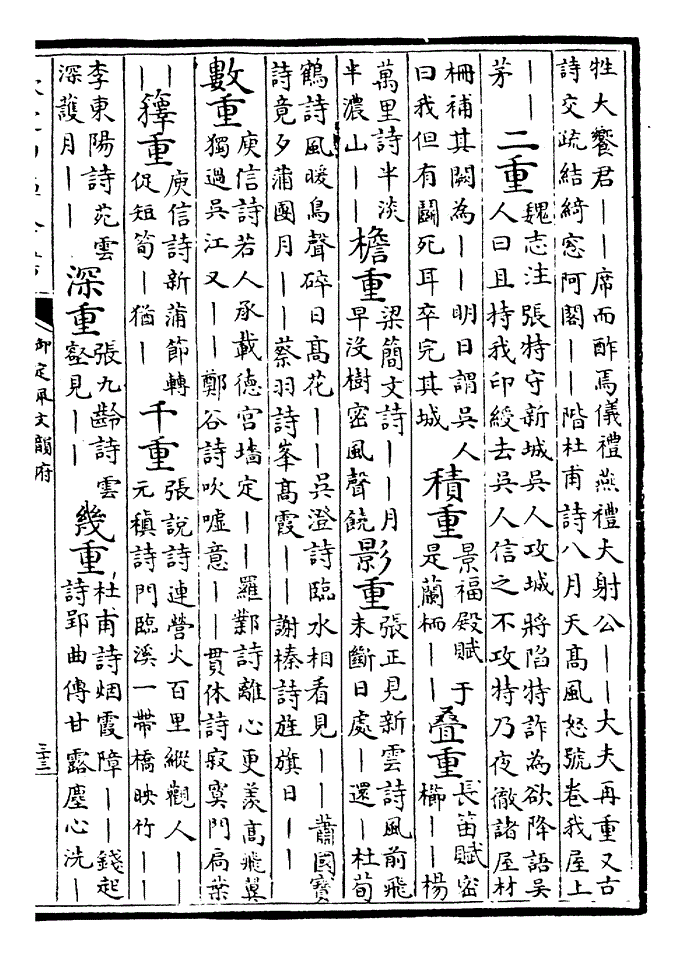 牲大饗君——席而酢焉儀禮燕禮大射公——大夫再重又古
詩交疏結綺窓阿閣——階杜甫詩八月天高風怒號卷我屋上
——
茅
二重
魏志注張特守新城吳人攻城將陷特詐為欲降語吳
人曰且持我印綬去吳人信之不攻特乃夜徹諸屋材
柵補其闕為——明日謂吳人
曰我但有鬭死耳卒完其城
積重
景福殿賦于
是蘭栭——
叠重
長笛賦密
櫛——楊
萬里詩半淡
半濃山——
檐重
梁簡文詩——月
早没樹密風聲饒
影重
張正見新雲詩風前飛
未斷日處——還—杜荀
鶴詩風暖鳥聲碎日髙花——吳澄詩臨水相看見——蕭國寶
詩竟夕蒲團月——蔡羽詩峯髙霞——謝榛詩旌旗日——
數重
庾信詩若人承載德宮墻定——羅鄴詩離心更羨高飛翼
獨過吳江又——鄭谷詩吹噓意——貫休詩寂寞門扃葉
——
籜重
庾信詩新蒲節轉
促短筍—猶—
千重
張說詩連營火百里縱觀人——
元稹詩門臨溪一帶橋映竹——
李東陽詩苑雲
深護月——
深重
張九齡詩雲
壑見——
幾重
杜甫詩烟霞障——錢起
詩郢曲傳甘露塵心洗—
御定佩文韻府
三十三